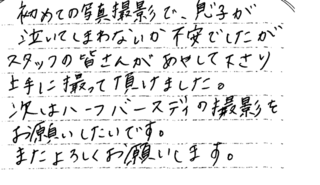 初めての写真撮影で、息子が
泣いてしまわないか不安でしたが
スタッフの皆さんがあやして下さり
上手に撮って頂けました。
次はハーフバースディの撮影を
お願いしたいです。
またよろしくお願いします。